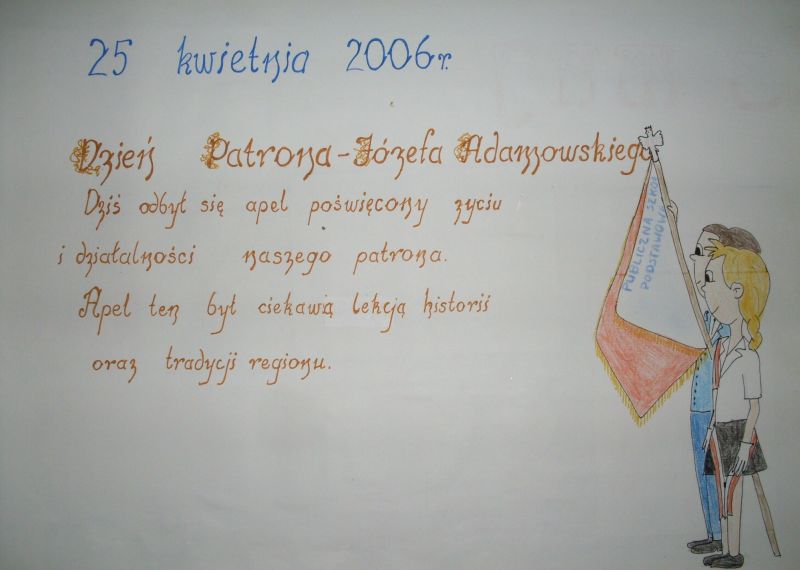 25 kwietnia 2006r.
Dzień Patrona-Józefa Adamowskiego
Dziś odbył się apel poświęcony życiu
i działalności naszego patrona.
Apel ten był ciekawą lekcją historii
oraz tradycji regionu.
PUBLICZNA SZKOŁA
PODSTAWOWA